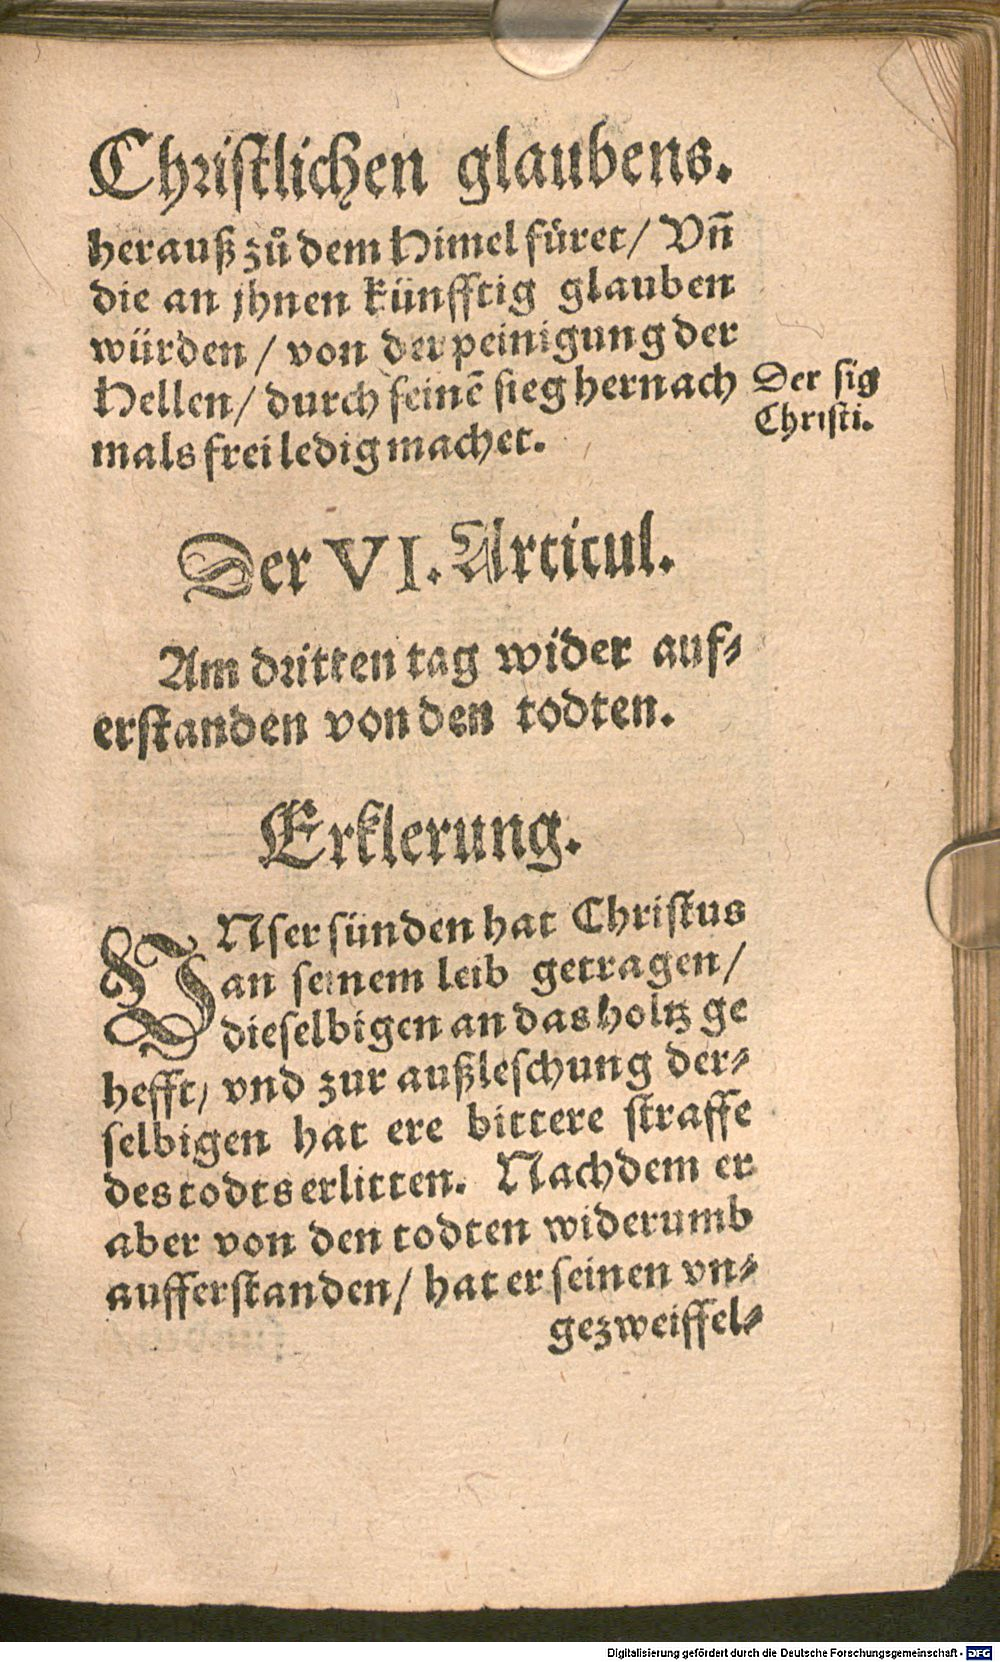 Christlichen glaubens.
herauß zů dem Himel füret/ Vñ
die an jhnen künfftig glauben
würden / von der peinigung der
Hellen/ durch seinē sieg hernach
mals frei ledig machet.
Der sig
Christi.
Der VI. Articul.
Am dritten tag wider auf⸗
erstanden von den todten.
Erklerung.
VNser sünden hat Christus
an seinem leib getragen/
dieselbigen an das holtz ge
hefft/ vnd zur außleschung der⸗
selbigen hat ere bittere straffe
des todts erlitten. Nachdem er
aber von den todten widerumb
aufferstanden/ hat er seinen vn⸗
gezweiffel⸗
Digitalisierung gefördert durch die Deutsche Forschungsgemeinschaft - DFG